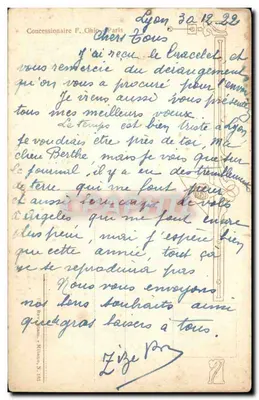 Lyon 30.12.22
Concessionnaire F. Paris
Chers Tous
J'ai reçu le bracelet et
vous remercie du dérangement
qu'on vous a procuré pour
Je viens aussi vous présenter
tous mes meilleurs voeux.
Le temps est bien triste à Lyon
Je voudrais être près de toi, ma
chère Berthe, mais je vois que sur
le journal, il y a eu des tremblements
de terre qui me font peur
et aussi
qui me font encore
plus peur, mais j'espère bien
que cette année, tout ça
ne se reproduira pas
Nous vous envoyons
nos bons souhaits ainsi
que gros baisers à tous.
Zize